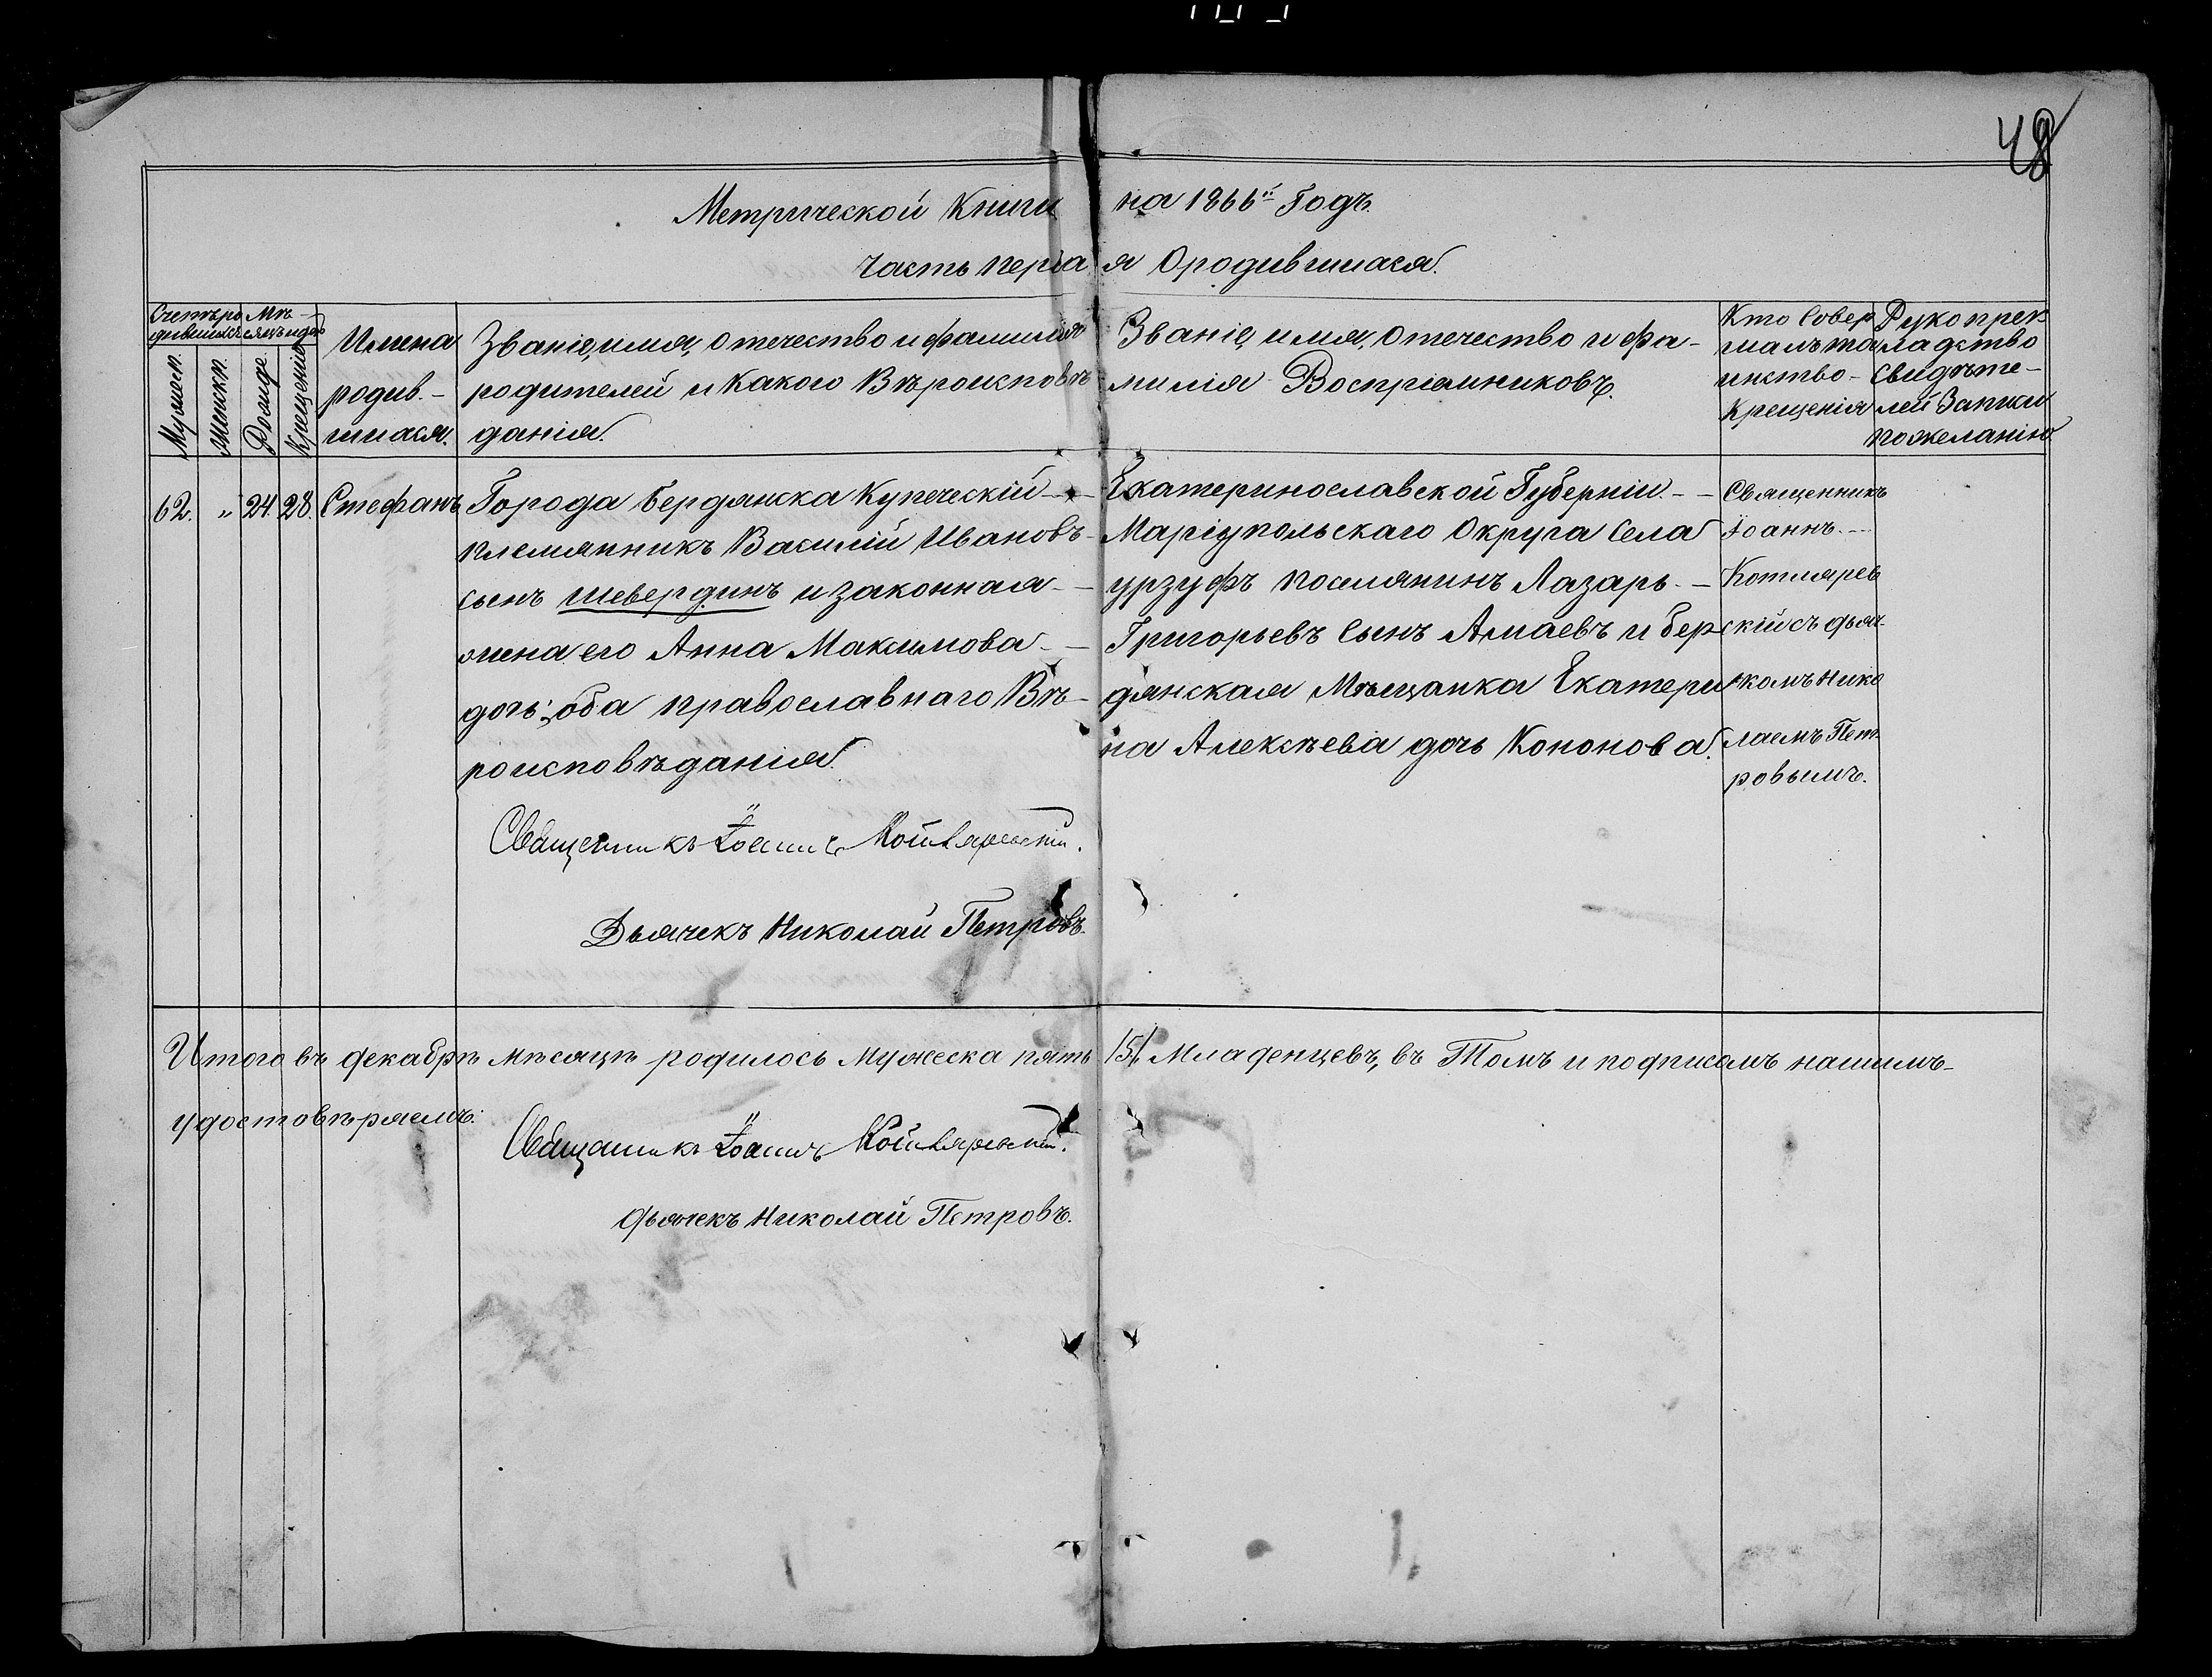 48
Метрической Книги на 1866й Годъ.
Часть перва я Ородившихся.
Счетъ ро
дившихся
Мѣ-
сяцъ и день
Мужеск.
Женскп.
Рожде.
Крещенія
Имена
родив.-
шихся.
Званіе, имя, отечество и фамилія
родителей и какого Вѣроисповѣ
данія.
Званіе, имя, отечество и фа-
милія Воспріемниковъ.
Кто Совер
шалъ та
инство-
Крещенія
Рукоприк
ладство
Свидѣте-
лей Записи
пожеланію.
62. „ 24 28. Стефанъ
Города Бердянска Купеческій
племянникъ Василій Ивановъ
сынъ Шевердинъ и законная
жена его Анна Максимова
дочь; оба православнаго Вѣ-
роисповѣданія.
Священникъ Іоаннъ Котляревскій.
Дьячекъ Николай Петровъ.
Екатеринославской Губерніи
Маріупольскаго Округа Села
Урзуфъ поселянинъ Лазарь
Григорьевъ Сынъ Алмаевъ и Бер
дянская Мѣщанка Екатери
на Алексѣева дочь Кононова.
Священникъ
Іоаннъ
Котлярев
скій съ дьяч
комъ Нико
лаемъ Пет
ровымъ.
Итого въ декабрѣ мѣсяцѣ родилось Мужеска пять /5/. Младенцевъ, въ Томъ и подписомъ нашимъ
удостовѣряемъ:
Священникъ Іоаннъ Котляревскій.
Дьячекъ Николай Петровъ.